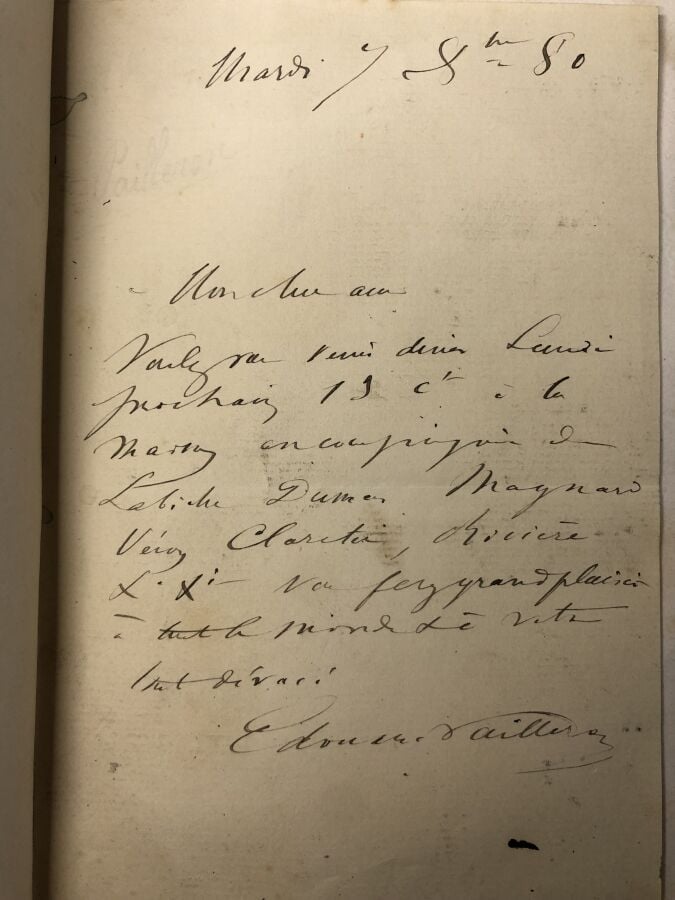 Mardi 7 Xbre 80
Pailleron
Mon cher ami
Voulez vous venir diner Lundi
prochain 13 ct à la
maison en compagnie de
Labiche Dumas Magnard
Véron Claretie, Rivière
&. &. Vous ferez grand plaisir
à tout le monde & à votre
tout dévoué
Edouard Pailleron